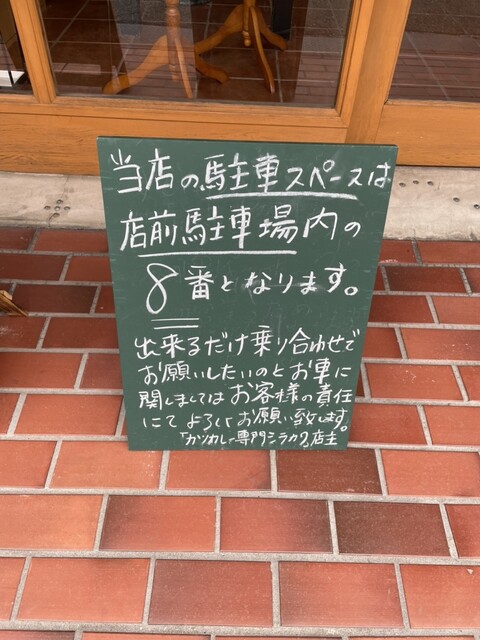 当店の駐車スペースは
店前駐車場内の
8番となります。
出来るだけ乗り合わせで
お願いしたいのとお車に
関しましてはお客様の責任
にてよろしくお願い致します。
「カツカレー専門シラカワ店主